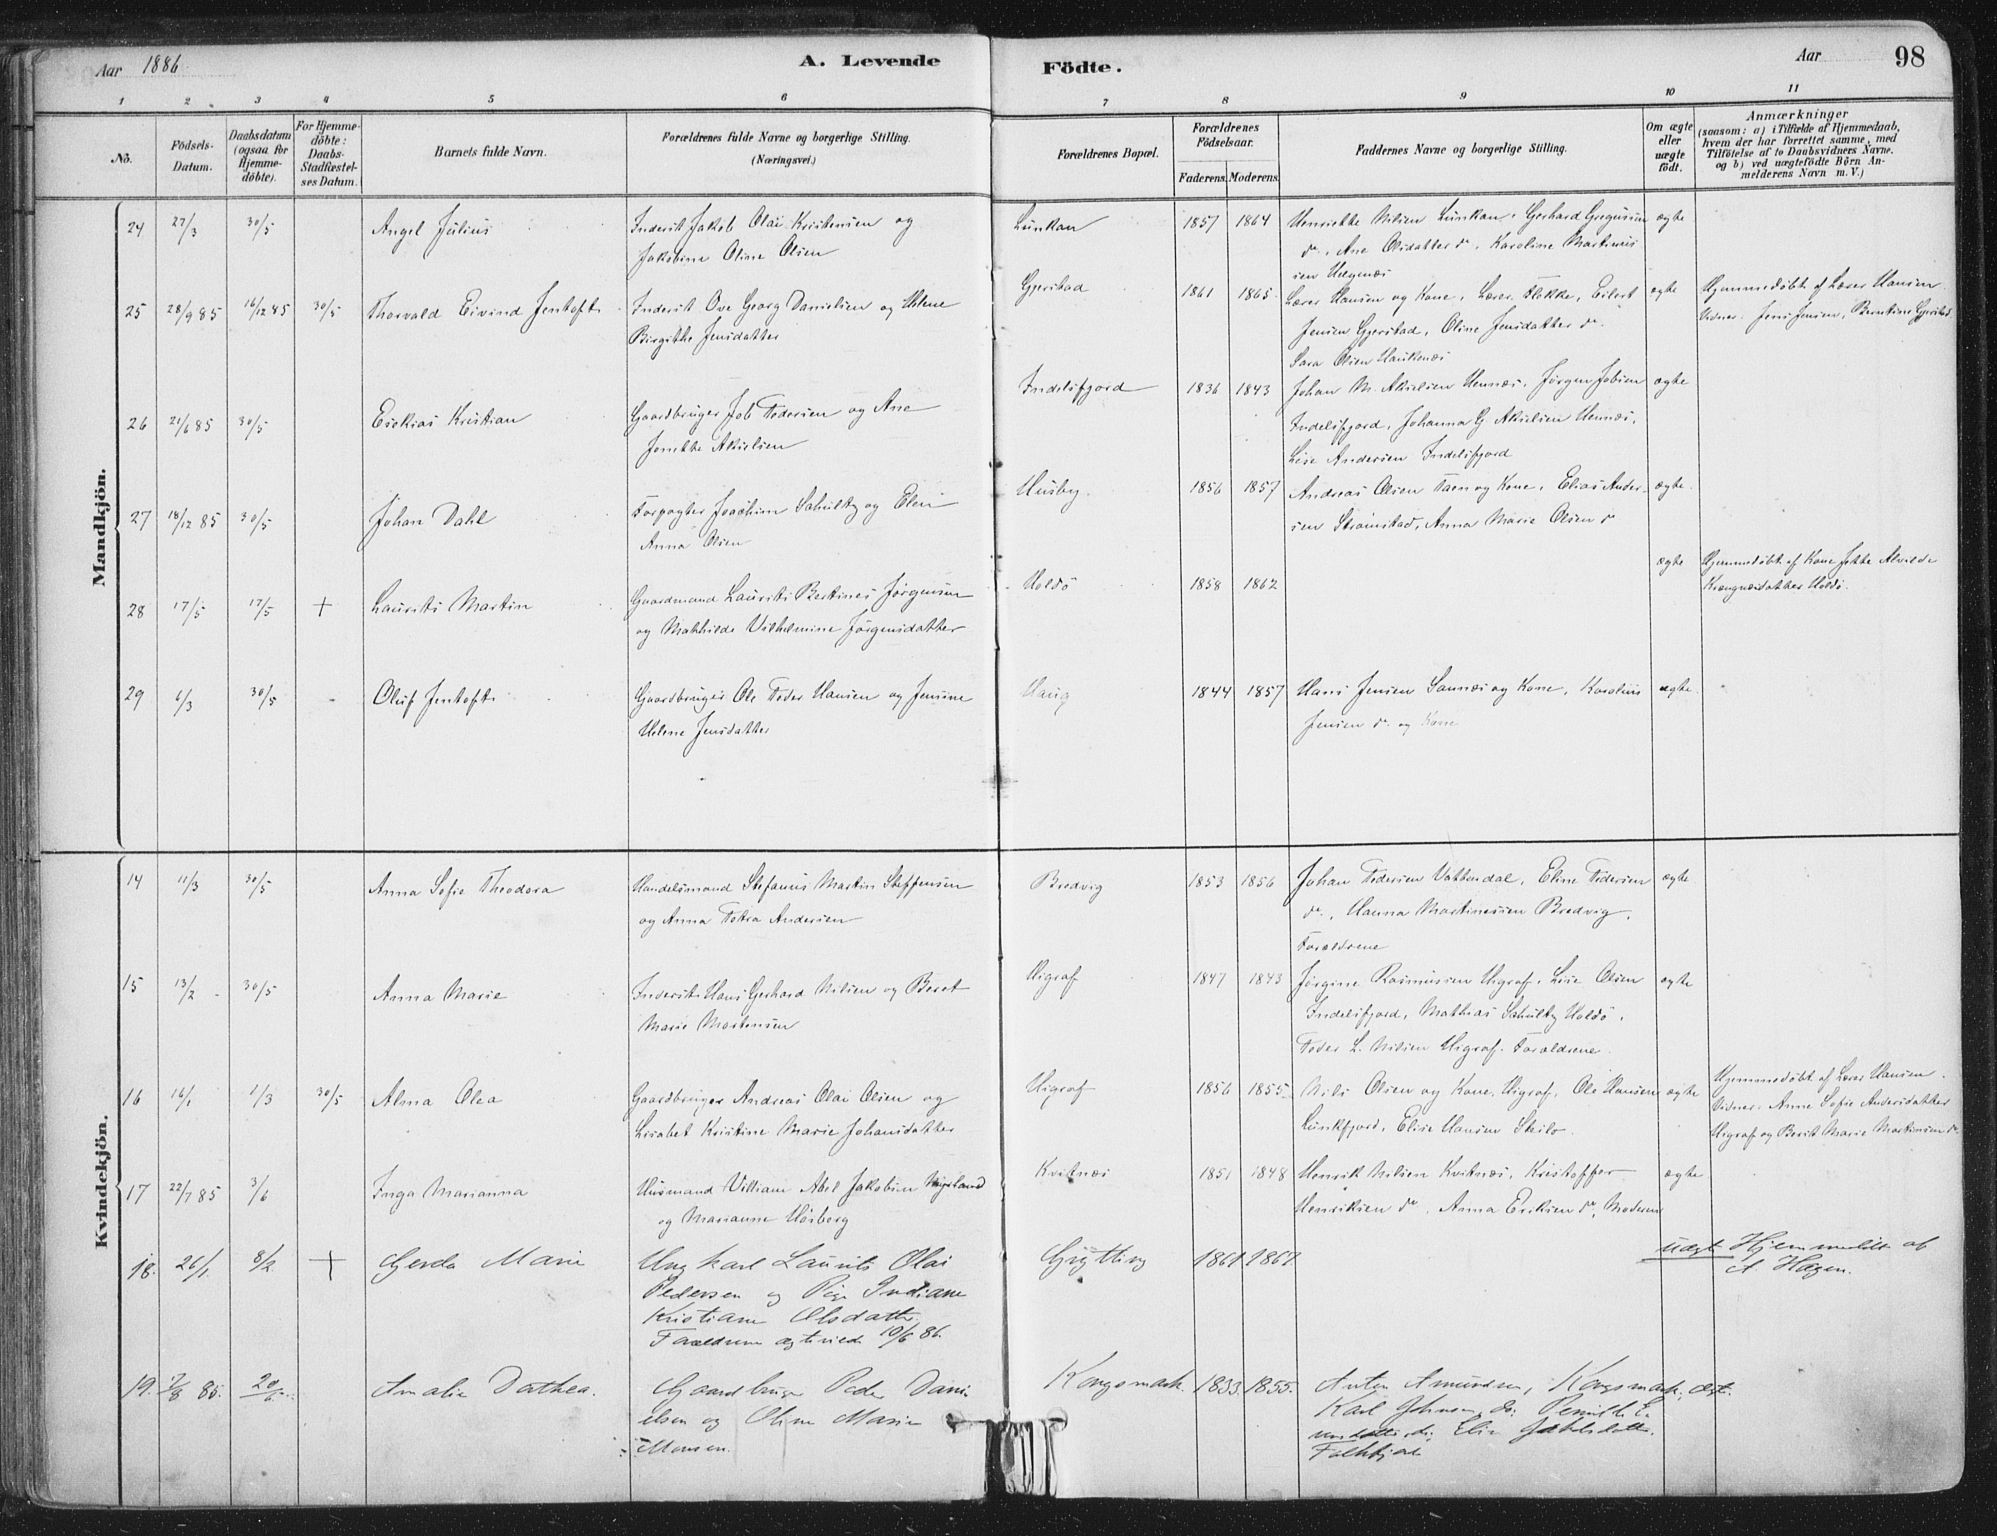 Aar 1886
A. Levende
Födte.
Aar
98
1 2 3 4 5 6 7 8 9 10 11
No.
Födsels-
Datum.
Daabsdatum
(ogsaa for
Hjemme-
döbte).
For Hjemme-
döbte:
Daabs-
Stadfæstel-
ses Datum.
Barnets fulde Navn.
Forældrenes fulde Navne og borgerlige Stilling.
(Næringsvei.)
Forældrenes Bopæl.
Forældrenes
Födselsaar.
Faderens. Moderens.
Faddernes Navne og borgerlige Stilling.
Om ægte
eller
uægte
født.
Anmærkninger
(saasom: a) i Tilfælde af Hjemmedaab,
hvem der har forrettet samme, med
Tilföielse af to Daabsvidners Navne.
og b) ved uægtefödte Börn An-
melderens Navn m. V.)
Mandkjön.
24 27/3 30/5 Angel Julius
Inderst Jakob Olai Kristensen og
Jakobine Oline Olsen
Lunkan 1857 1864
Henrikke Nilsen Lunkan, Gerhard Gregusen
do, Ane Olsdatter do, Karoline Martinus
sen Helgenæs
ægte
25 28/9 85 16/12 85 30/5 Thorvald Eivind Jentoft
Inderst Ove Georg Danielsen og Helene
Birgitte Jensdatter
Gjerstad 1861 1865
Lærer Hansen og Kone, Lærer Flokke, Eilert
Jensen Gjerstad, Oline Jensdatter do
Sara Olsen Haukenæs
ægte
Hjemmedöbt af Lærer Hansen
Vidner: Jens Jensen, Berntine Gjerstad
26 21/6 85 30/5 Esekias Kristian
Gaardbruger Job Pedersen og Ane
Jonette Akselsen
Indelsfjord 1836 1843
Johan M. Akselsen Hennæs, Jørgen Jobsen
Indelsfjord, Johanna G Akselsen Hennæs,
Lise Andersen Indelsfjord
ægte
27 18/12 85 30/5 Johan Dahl
Forpagter Joachim Schultz og Elen
Anna Olsen
Husby 1856 1857
Andreas Olsen Taen og Kone, Elias Ander-
sen Strømstad, Anna Marie Olsen do
ægte
28 17/5 17/5 + Laurits Martin
Gaardmand Laurits Bertines Jørgensen
og Mathilde Vilhelmine Jørgensdatter
Holdö 1858 1862
ægte
Hjemmedöbt af Kone Jette Alvilde
Krongnæsdatter Holdö.
29 6/3 30/5 Oluf Jentoft
Gaardbruger Ole Peder Hansen og Jensine
Helene Jensdatter
Haug 1844 1857
Hans Jensen Sannæs og Kone, Karolius
Jensen do og Kone
ægte
Kvindekjön.
14 11/3 30/5 Anna Sofie Theodora
Handelsmand Stefanus Martin Steffensen
og Anna Petra Andersen
Bredvig 1853 1856
Johan Pedersen Vattendal, Eline Pedersen
do, Hanna Martinessen Bredvig,
Forældrene
ægte
15 13/2 30/5 Anna Marie
Inderst Hans Gerhard Nilsen og Beret
Marie Mortensen
Higraf 1847 1843
Jørgine Rasmussen Higraf, Lise Olsen
Indelsfjord, Mathias Schultz Holdö,
Peder L. Nilsen Higraf. Forældrene
ægte
16 16/1 1/3 30/5 Alma Olea
Gaardbruger Andreas Olai Olsen og
Lisabet Kristine Marie Johansdatter
Higraf 1856 1855
Nils Olsen og Kone, Higraf, Ole Hansen
Lunkfjord, Elise Hansen Steilo
ægte
Hjemmedöbt af Lærer Hansen
Vidner: Anne Sofie Andersdatter
Higraf og Berit Marie Martinsen do
17 22/7 85 3/6 Inga Marianna
Husmand Villiam Abel Jakobsen
og Marianne Hösberg
Kvitnæs 1851 1848
Henrik Nilsen Kvitnæs, Kristoffer
Henriksen do, Anna Eriksen do, Moderen
ægte
18. 26/1. 8/2. + Gerda Marie
Ungkarl Laurits Olai
Pedersen og Pige Indiane
Kristiane Olsdatter
Forældrene ægteviede 10/6 86.
Grytting 1861. 1867.
uægt.
Hjemmedöbt af
A Hagen.
19. 7/8 85. 20/6. Amalie Dorthea.
Gaardbruger Peder Dani
elsen og Oline Marie
Monsen.
Kongsmark. 1833. 1855.
Anton Amundsen, Kongsmark,
Karl Johnsen do; Pernille E.
do; Elin Jakobsdatter
ægt.